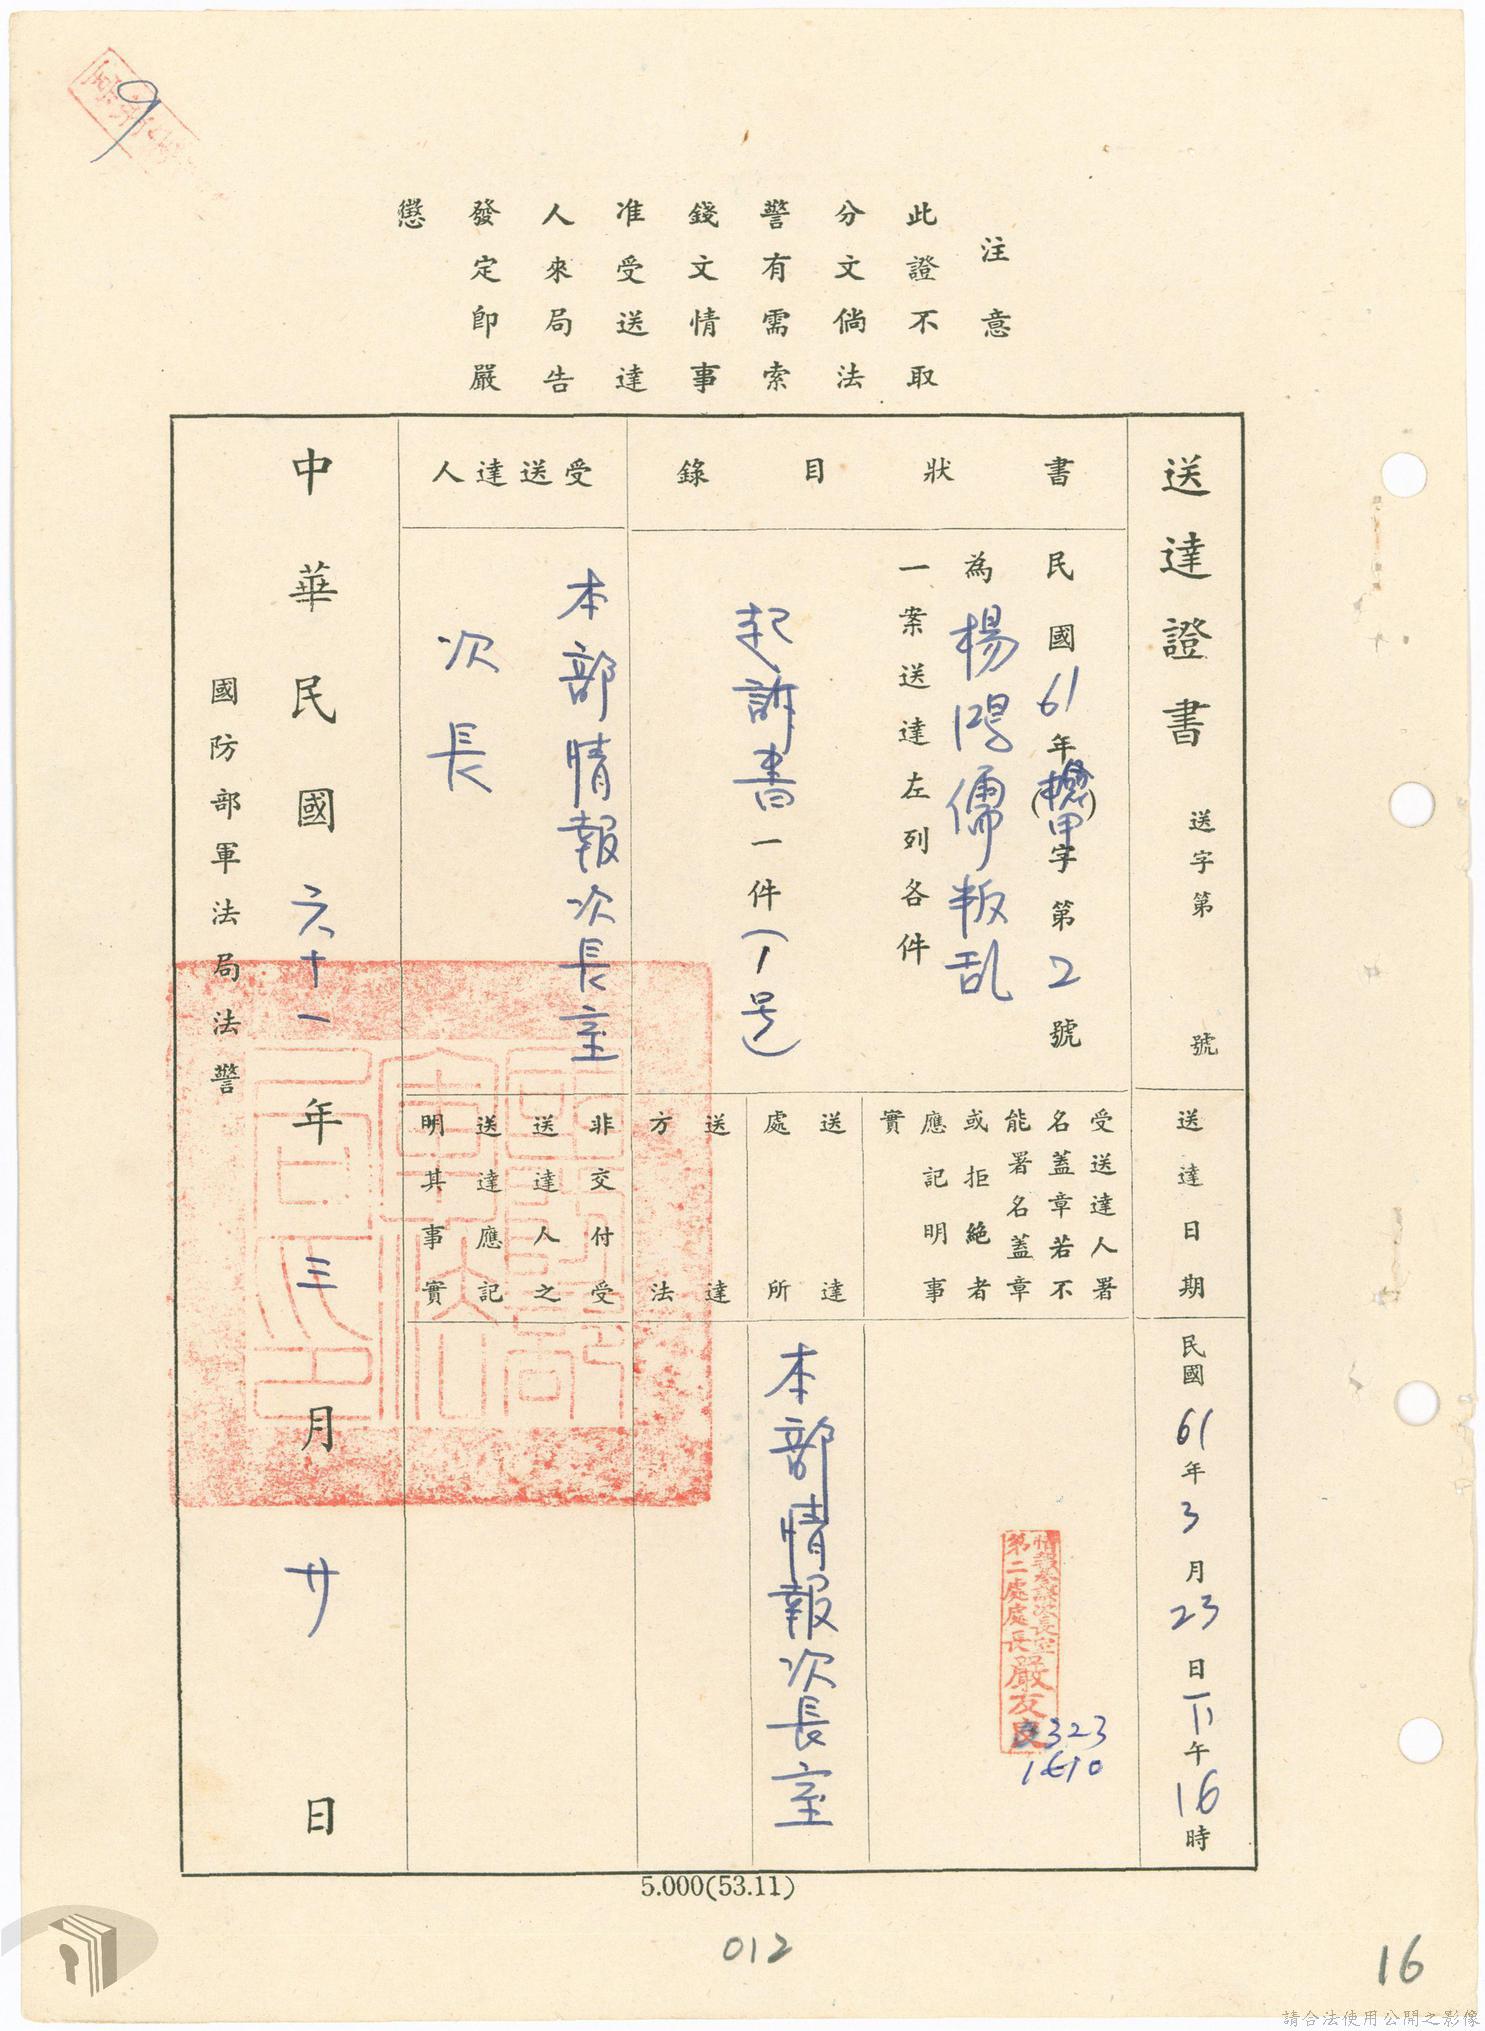 9
注意
此證不取
分文倘法
警有需索
錢文情事
准受送達
人來局告
發定即嚴
懲
送達證書
送字第 號
送達日期
民國61年3月23日下午16時
書狀目錄
民國61年( 甲)字第2號
為楊鴻儒叛乱
一案送達左列各件
起訴書一件(1号)
受送達人署
名蓋章若不
能署名蓋章
或拒絕者
應記明事
實
情報參謀次長室
第二處處長嚴友良
323
1610
送達
處所
本部情報次長室
送達
方法
受送達人
本部情報次長室
次長
非交付受
送達人之
送達應記
明其事實
中華民國六十一年三月廿日
國防部軍法局法警
國防部軍法局印
5.000(53.11)
012
16
請合法使用公開之影像